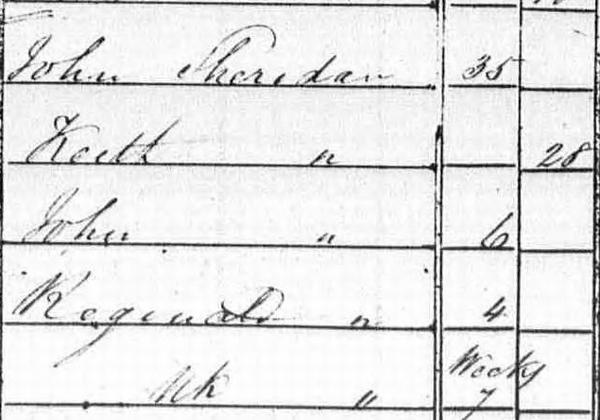 John Sheridan 35
Keith " 28
John " 6
Reginald " 4
Uk " Weeks 7